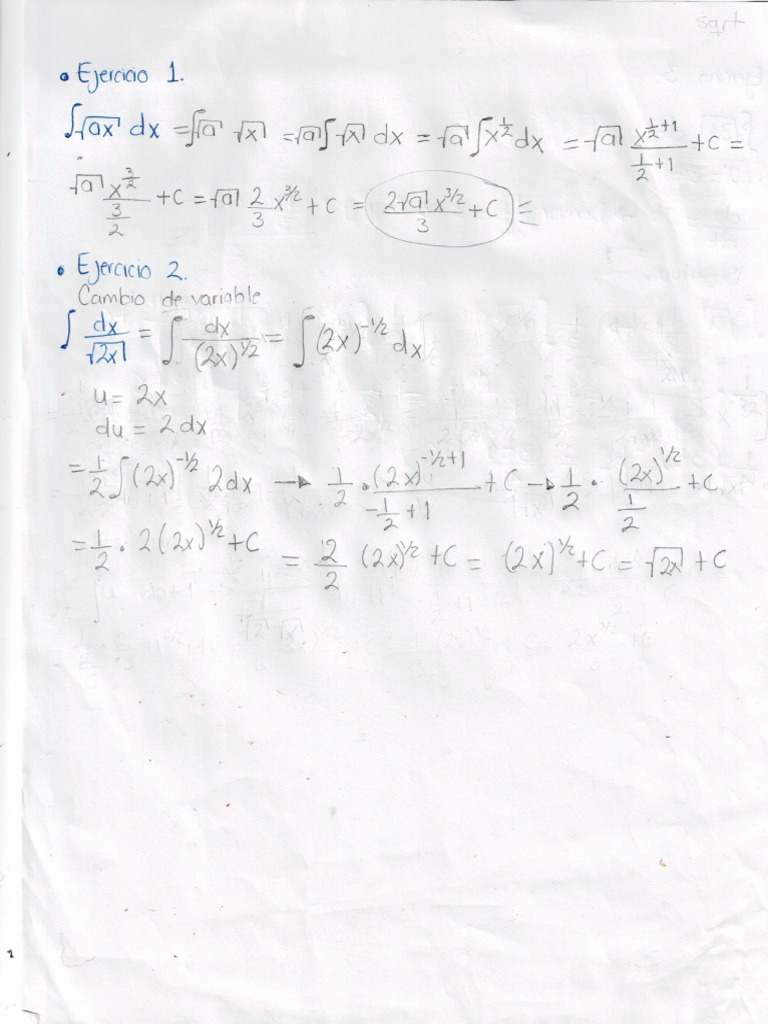 sqrt
• Ejercicio 1.
∫√ax dx = ∫√a √x = √a ∫√x dx = √a ∫x^{1/2} dx = √a x^{1/2+1}/(1/2+1) + C =
√a x^{3/2}/(3/2) + C = √a 2/3 x^{3/2} + C = 2√a x^{3/2}/3 + C
• Ejercicio 2.
Cambio de variable
∫ dx/√2x = ∫ dx/(2x)^{1/2} = ∫(2x)^{-1/2} dx
u = 2x
du = 2dx
= 1/2 ∫(2x)^{-1/2} 2dx → 1/2 · (2x)^{-1/2+1}/(-1/2+1) + C → 1/2 · (2x)^{1/2}/(1/2) + C
= 1/2 · 2(2x)^{1/2} + C = 2/2 (2x)^{1/2} + C = (2x)^{1/2} + C = √2x + C